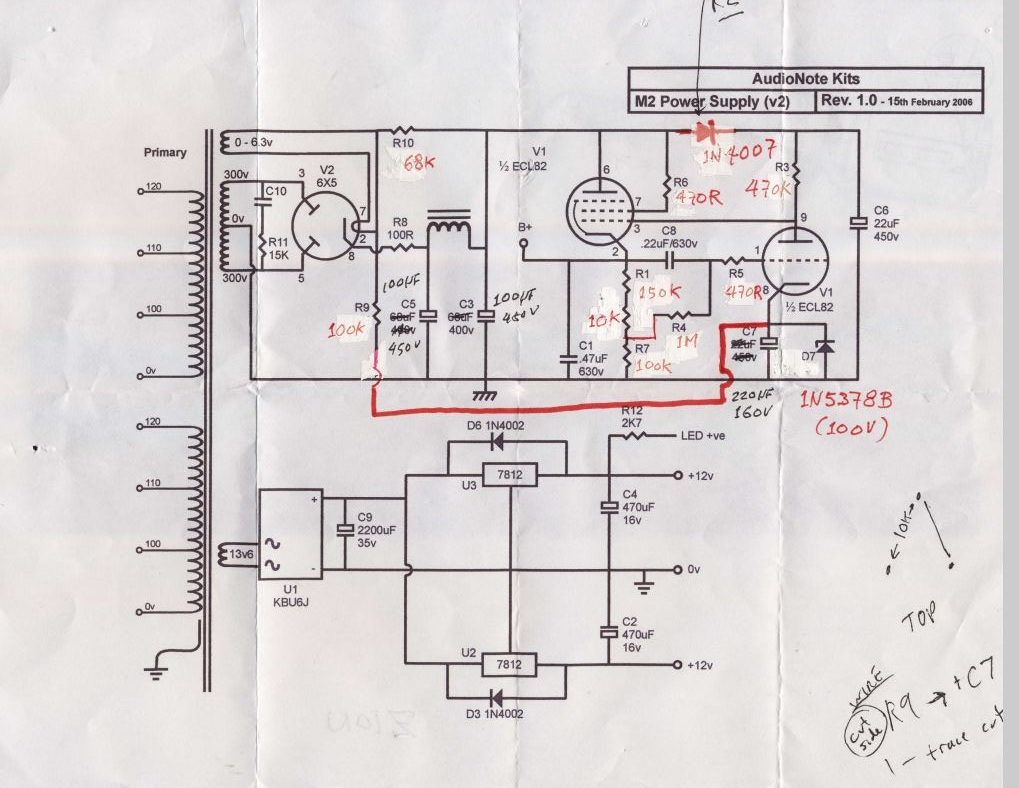 AudioNote Kits
M2 Power Supply (v2)
Rev. 1.0 - 15th February 2006
Primary
120
110
100
0v
120
110
100
0v
0 - 6.3v
300v
0v
300v
C10
R11
15K
V2
6X5
3
5
7
2
8
R10
68K
R8
100R
R9
100k
100µF
C5
450V
C3
400v
100µF
450V
V1
½ ECL82
B+
6
7
3
2
R6
470R
1N4007
R3
470K
C8
.22uF/630v
R1
150K
10K
R4
1M
R7
100K
C1
.47uF
630v
R5
470R
1
9
8
V1
½ ECL82
C6
22uF
450v
C7
22uF
450v
220µF
160V
D7
1N5378B
(100V)
R12
2K7
LED +ve
D6 1N4002
U3
7812
+12v
C4
470uF
16v
0v
C2
470uF
16v
U2
7812
+12v
D3 1N4002
13v6
U1
KBU6J
+
-
C9
2200uF
35v
10K
TOP
WIRE
cut side
R9 → +C7
1 - trace cut